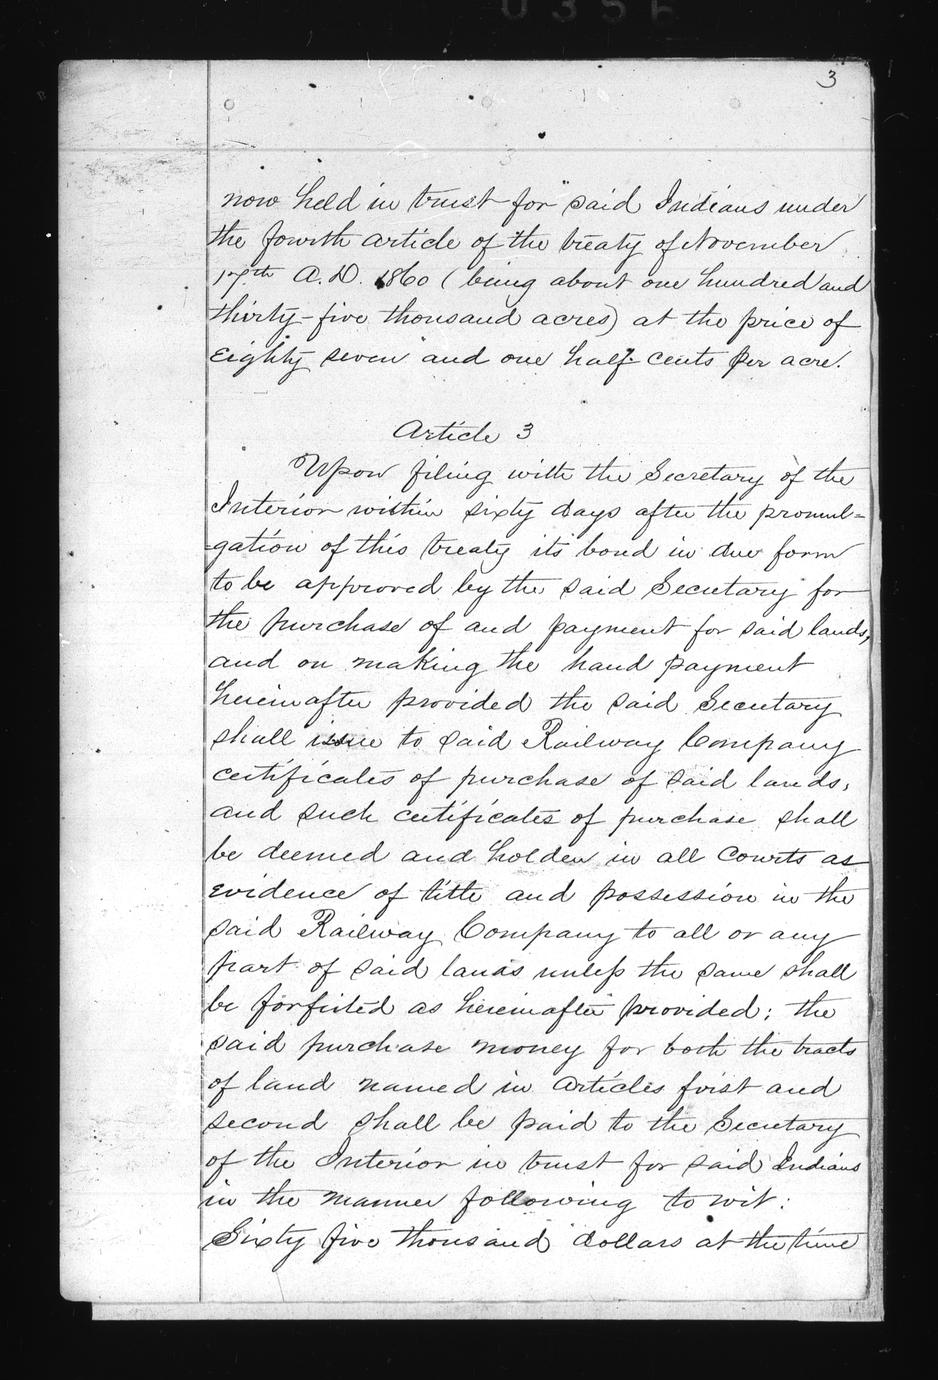 0356
3
now held in trust for said Indians under
the fourth article of the treaty of November
17th A.D. 1860 (being about one hundred and
thirty-five thousand acres) at the price of
eighty seven and one half cents per acre.
Article 3
Upon filing with the Secretary of the
Interior within sixty days after the promul=
=gation of this treaty its bond in due form
to be approved by the said Secretary for
the purchase of and payment for said lands,
and on making the hand payment
hereinafter provided the said Secretary
shall issue to said Railway Company
certificates of purchase of said lands,
and such certificates of purchase shall
be deemed and holden in all Courts as
evidence of title and possession in the
said Railway Company to all or any
part of said lands unless the same shall
be forfeited as hereinafter provided; the
said purchase money for both the tracts
of land named in articles first and
second shall be paid to the Secretary
of the Interior in trust for said Indians
in the manner following to wit:
Sixty five thousand dollars at the time